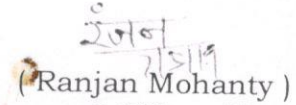 रंजन
(Ranjan Mohanty)